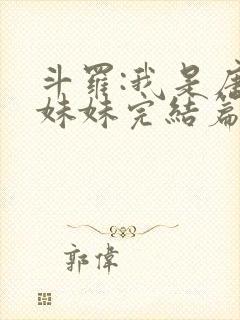 斗羅:我是唐
妹妹完結篇
郭偉